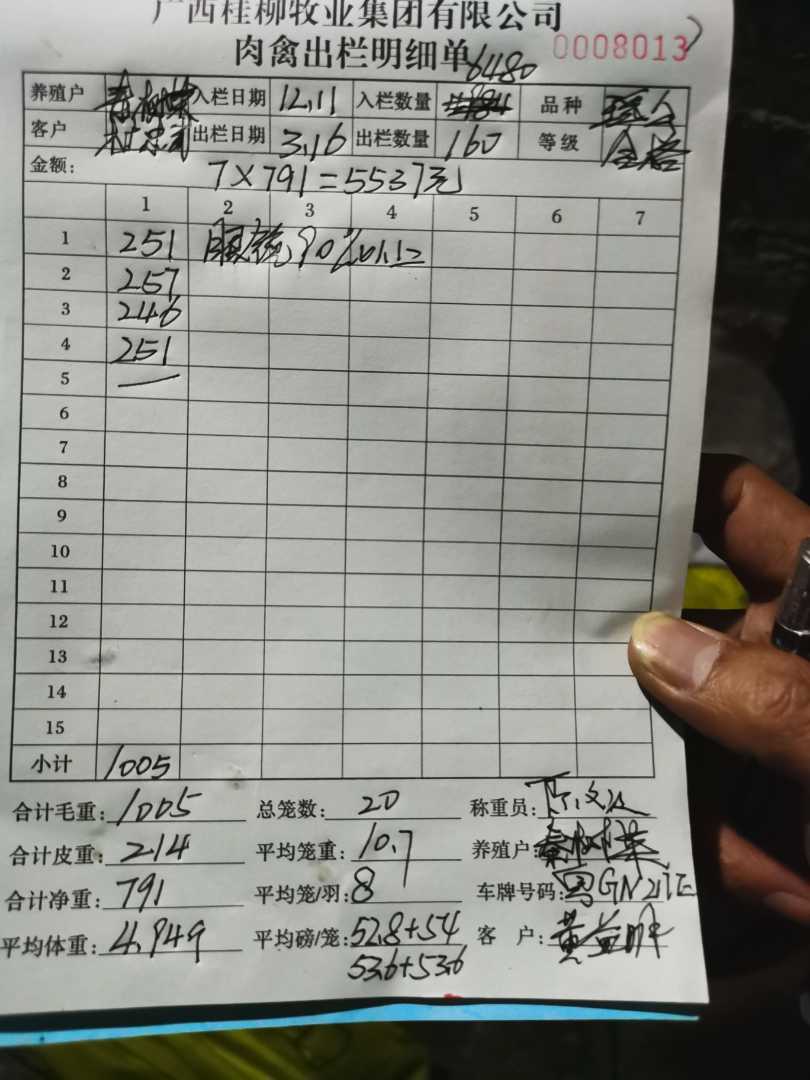 广西桂柳牧业集团有限公司
肉禽出栏明细单 0008013
6480
养殖户 入栏日期 12.11 入栏数量 品种
客户 出栏日期 3.16 出栏数量 160 等级
金额: 7×791=5537元
1 2 3 4 5 6 7
1 251 90%
2 257
3 246
4 251
5 —
6
7
8
9
10
11
12
13
14
15
小计 1005
合计毛重: 1005 总笼数: 20 称重员:
合计皮重: 214 平均笼重: 10.7 养殖户:
合计净重: 791 平均笼/羽: 8 车牌号码:
平均体重: 4.949 平均磅/笼: 52.8+54 客户: 黄益胜
53.6+53.6